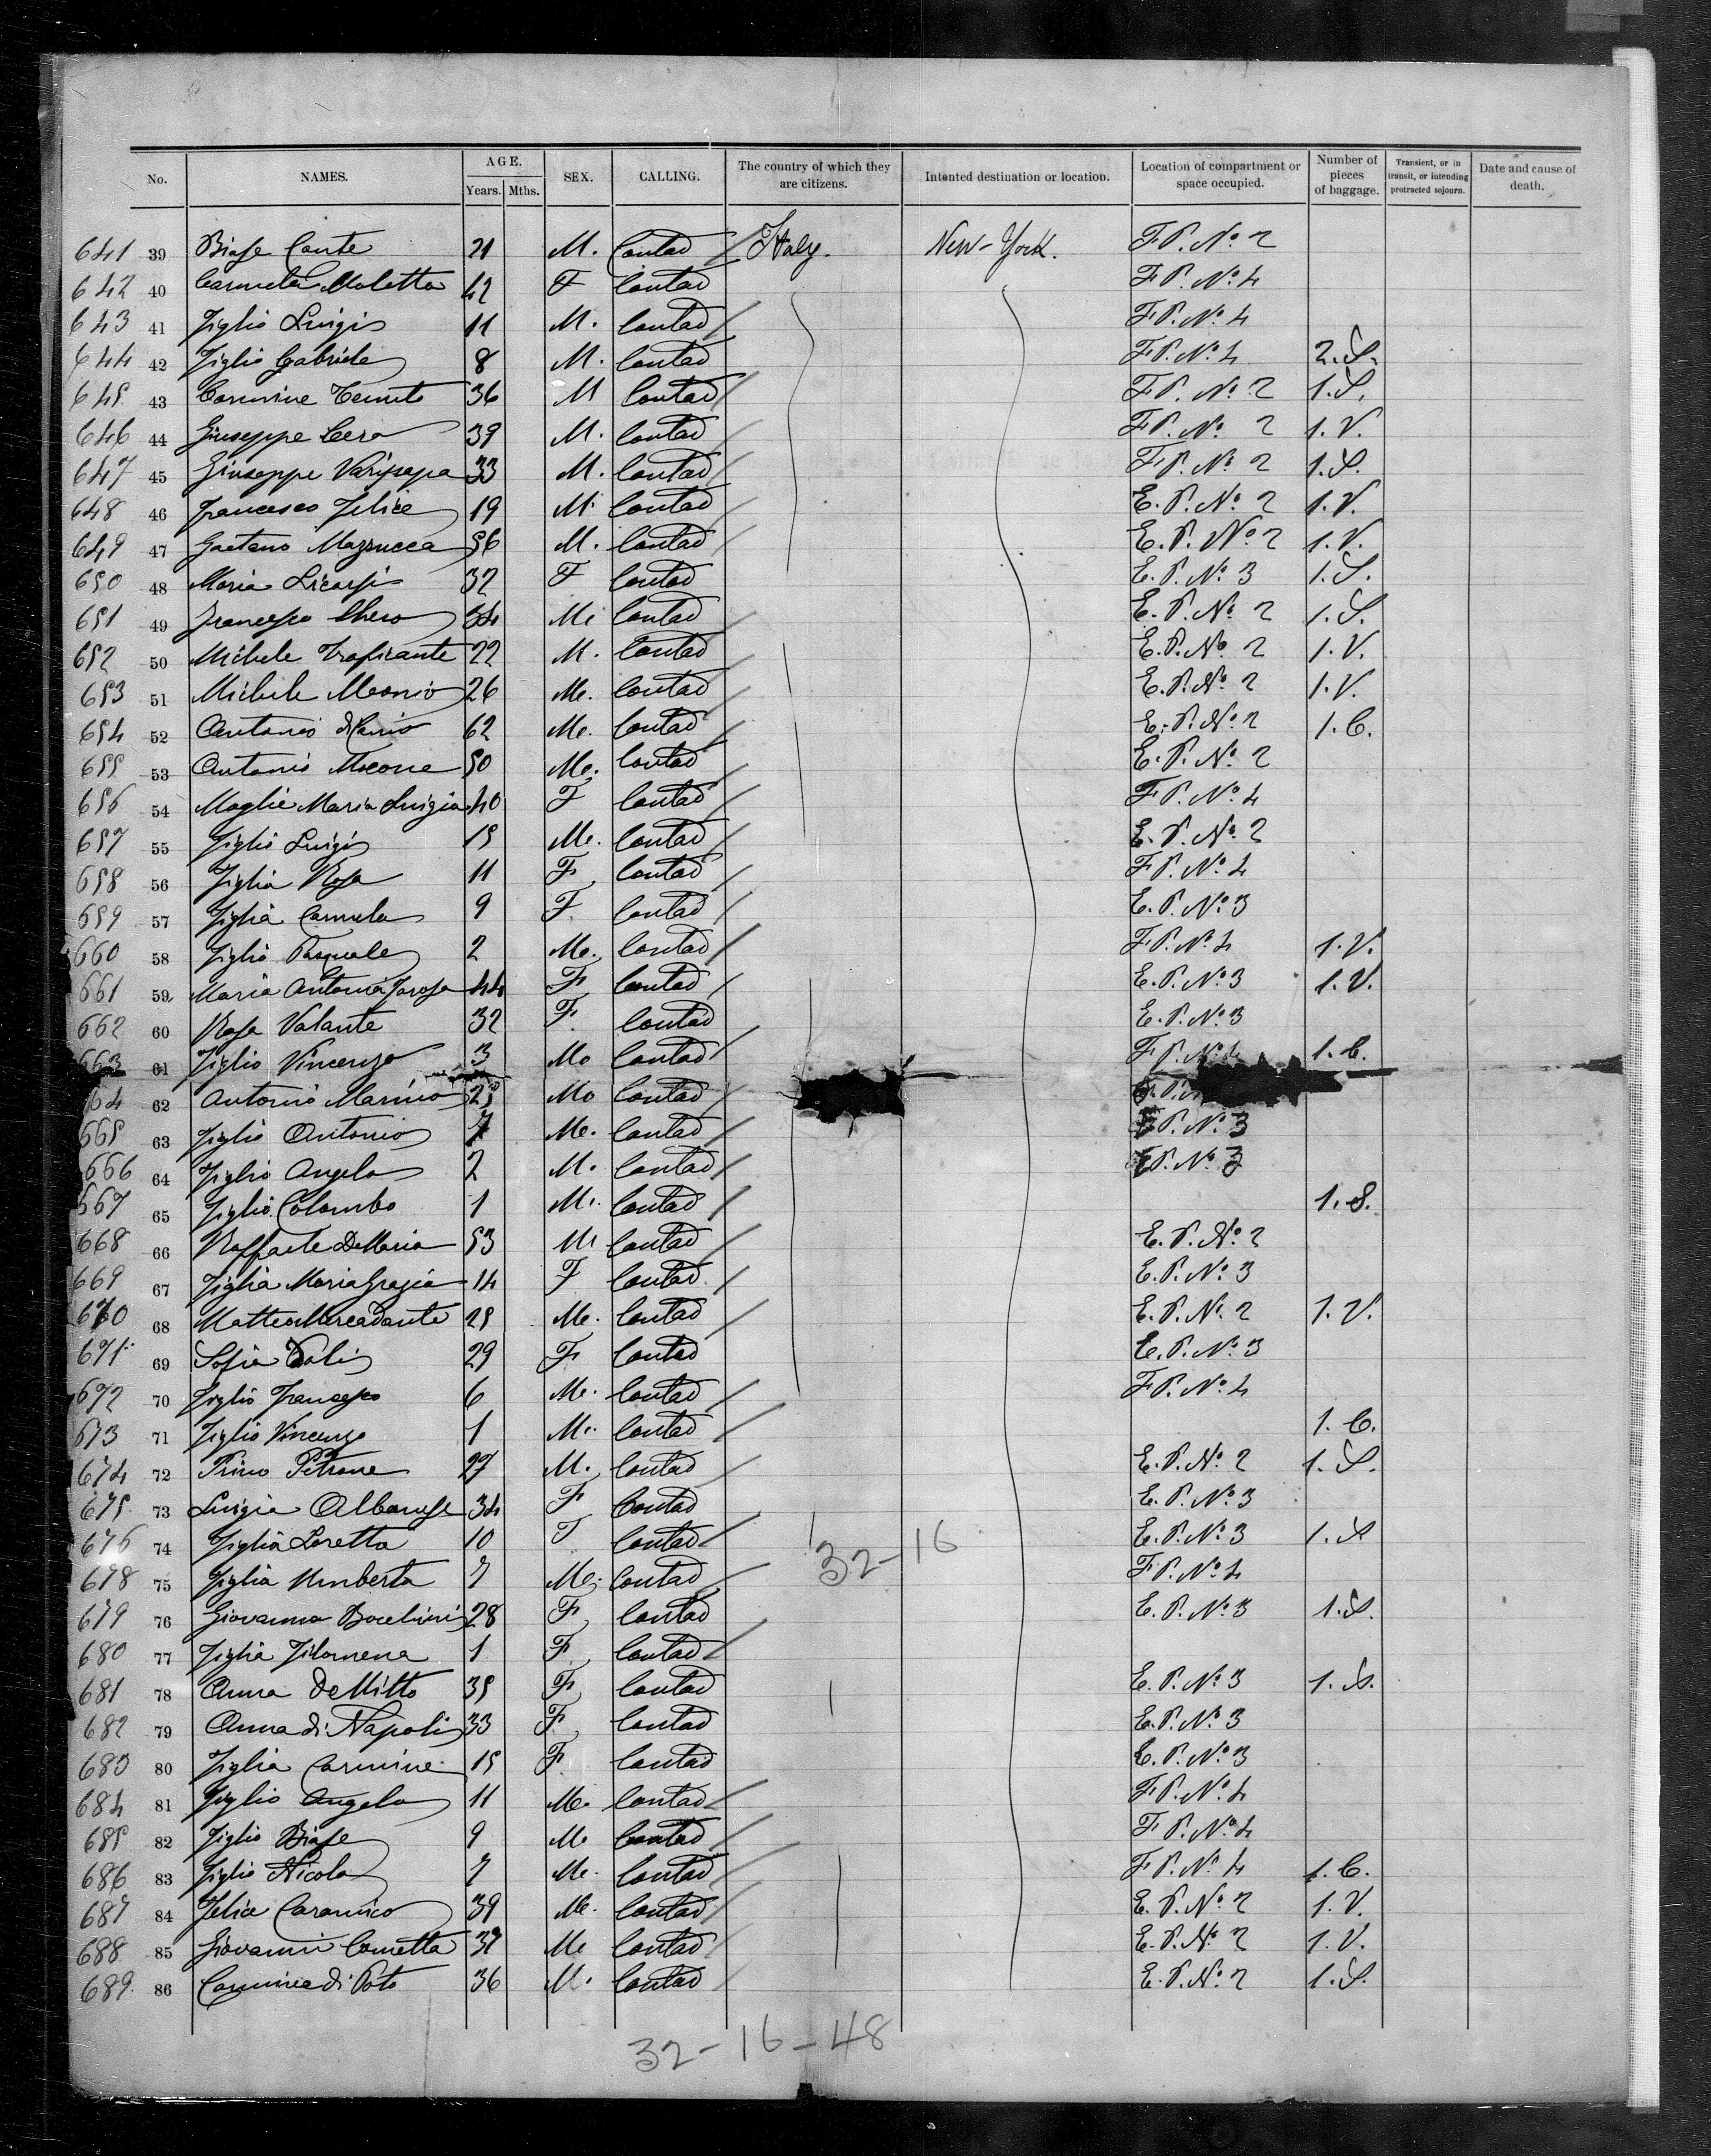 No. NAMES. AGE. Years. Mths. SEX. CALLING. The country of which they are citizens. Intented destination or location. Location of compartment or space occupied. Number of pieces of baggage. Transient, or in transit, or intending protracted sojourn. Date and cause of death.
641 39 Biase Conte 21 M. Contad Italy. New-York. F P. No. 2
642 40 Carmela Moletta 42 F Contad F P. No. 4
643 41 Figlio Luigi 11 M. Contad F P. No. 4
644 42 Figlio Gabriele 8 M. Contad F P. No. 4 2. S.
645 43 Carmine 36 M Contad F P. No. 2 1. S.
646 44 Giuseppe Cera 39 M. Contad F P. No. 2 1. V.
647 45 Giuseppe Varipapa 33 M. Contad F P. No. 2 1. S.
648 46 Francesco Felice 19 M. Contad E. P. No. 2 1. V.
649 47 Gaetano Mazzucca 56 M. Contad E. P. No. 2 1. V.
650 48 Maria Licarsi 32 F Contad E. P. No. 3 1. S.
651 49 Francesco Chero 34 M. Contad E. P. No. 2 1. S.
652 50 Michele Traficante 22 M. Contad E. P. No. 2 1. V.
653 51 Michele 26 M. Contad E. P. No. 2 1. V.
654 52 Antonio 62 M. Contad E. P. No. 2 1. C.
655 53 Antonio Mocone 50 M. Contad E. P. No. 2
656 54 Moglie Maria Luigia 40 F Contad F P. No. 4
657 55 Figlio Luigi 15 M. Contad E. P. No. 2
658 56 Figlia Rosa 11 F Contad F P. No. 4
659 57 Figlia Carmela 9 F. Contad E. P. No. 3
660 58 Figlio Pasquale 2 M. Contad F P. No. 4 1. V.
661 59 Maria Antonia 44 F Contad E. P. No. 3 1. V.
662 60 Rosa Valante 32 F. Contad E. P. No. 3
663 61 Figlio Vincenzo 3 M Contad F P. No. 4 1. C.
64 62 Antonio Marino M Contad
665 63 Figlio Antonio 7 M. Contad P. No. 3
666 64 Figlio Angelo 2 M. Contad P. No. 3
667 65 Figlio Colombo 1 M. Contad 1. S.
668 66 Raffaele DeMaria 53 M Contad E. P. No. 2
669 67 Figlia Maria Grazia 14 F Contad E. P. No. 3
670 68 Matteo Mercadante 25 M. Contad E. P. No. 2 1. V.
671 69 Sofia 29 F Contad E. P. No. 3
672 70 Figlio Francesco 6 M. Contad F P. No. 4
673 71 Figlio Vincenzo 1 M. Contad 1. C.
674 72 Primo Petrone 27 M. Contad E. P. No. 2 1. S.
675 73 Luigia Albanese 34 F Contad E. P. No. 3
676 74 Figlia Loretta 10 F Contad E. P. No. 3 1. S
32-16
678 75 Figlia Umberta 7 M. Contad F P. No. 4
679 76 Giovanna 28 F Contad E. P. No. 3 1. S.
680 77 Figlia Filomena 1 F Contad
681 78 Anna DeMitto 35 F Contad E. P. No. 3 1. S.
682 79 Anna di Napoli 33 F Contad E. P. No. 3
683 80 Figlia Carmine 15 F. Contad E. P. No. 3
684 81 Figlio Angelo 11 M. Contad F P. No. 4
685 82 Figlio Biase 9 M Contad F P. No. 4
686 83 Figlio Nicola 7 M. Contad F P. No. 4 1. C.
687 84 Felice Caramico 39 M. Contad E. P. No. 2 1. V.
688 85 Giovanni Cometta 37 M Contad E. P. No. 2 1. V.
689 86 Carmine di Poto 36 M. Contad E. P. No. 2 1. S.
32-16-48